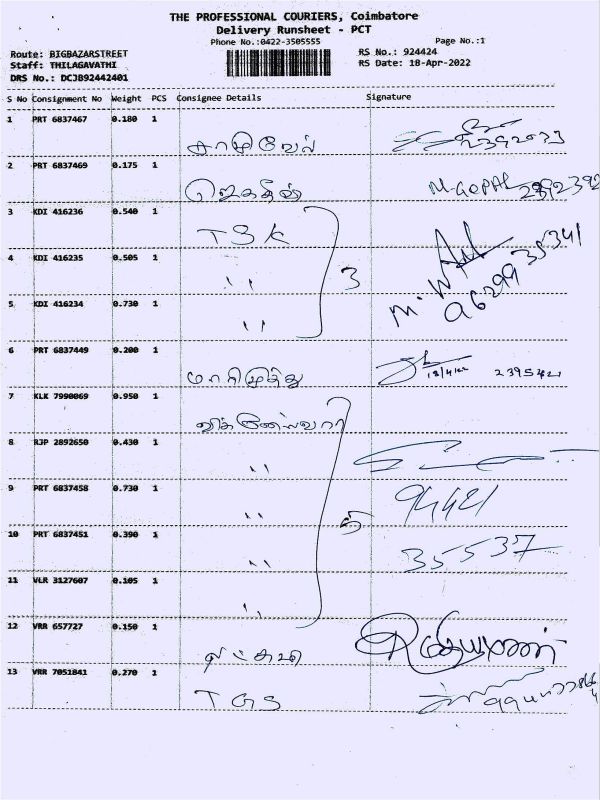 THE PROFESSIONAL COURIERS, Coimbatore
Delivery Runsheet - PCT
Phone No.:0422-3505555
Page No.:1
Route: BIGBAZARSTREET
RS No.: 924424
Staff: THILAGAVATHI
RS Date: 18-Apr-2022
DRS No.: DCJB92442401
S No Consignment No Weight PCS Consignee Details Signature
1 PRT 6837467 0.180 1
2392033
2 PRT 6837469 0.175 1
M.GOPAL
3 KDI 416236 0.540 1 TSK
4 KDI 416235 0.505 1 ,, 3
5 KDI 416234 0.730 1 ,,
6 PRT 6837449 0.200 1 மாரிமுத்து 18/4/22 2395421
7 KLK 7990069 0.950 1 விக்னேஸ்வரா
8 RJP 2892650 0.430 1 ,,
9 PRT 6837458 0.730 1 ,, 5 94421
10 PRT 6837451 0.390 1 ,, 35537
11 VLR 3127607 0.105 1 ,,
12 VRR 657727 0.150 1
13 VRR 7051841 0.270 1 TGS